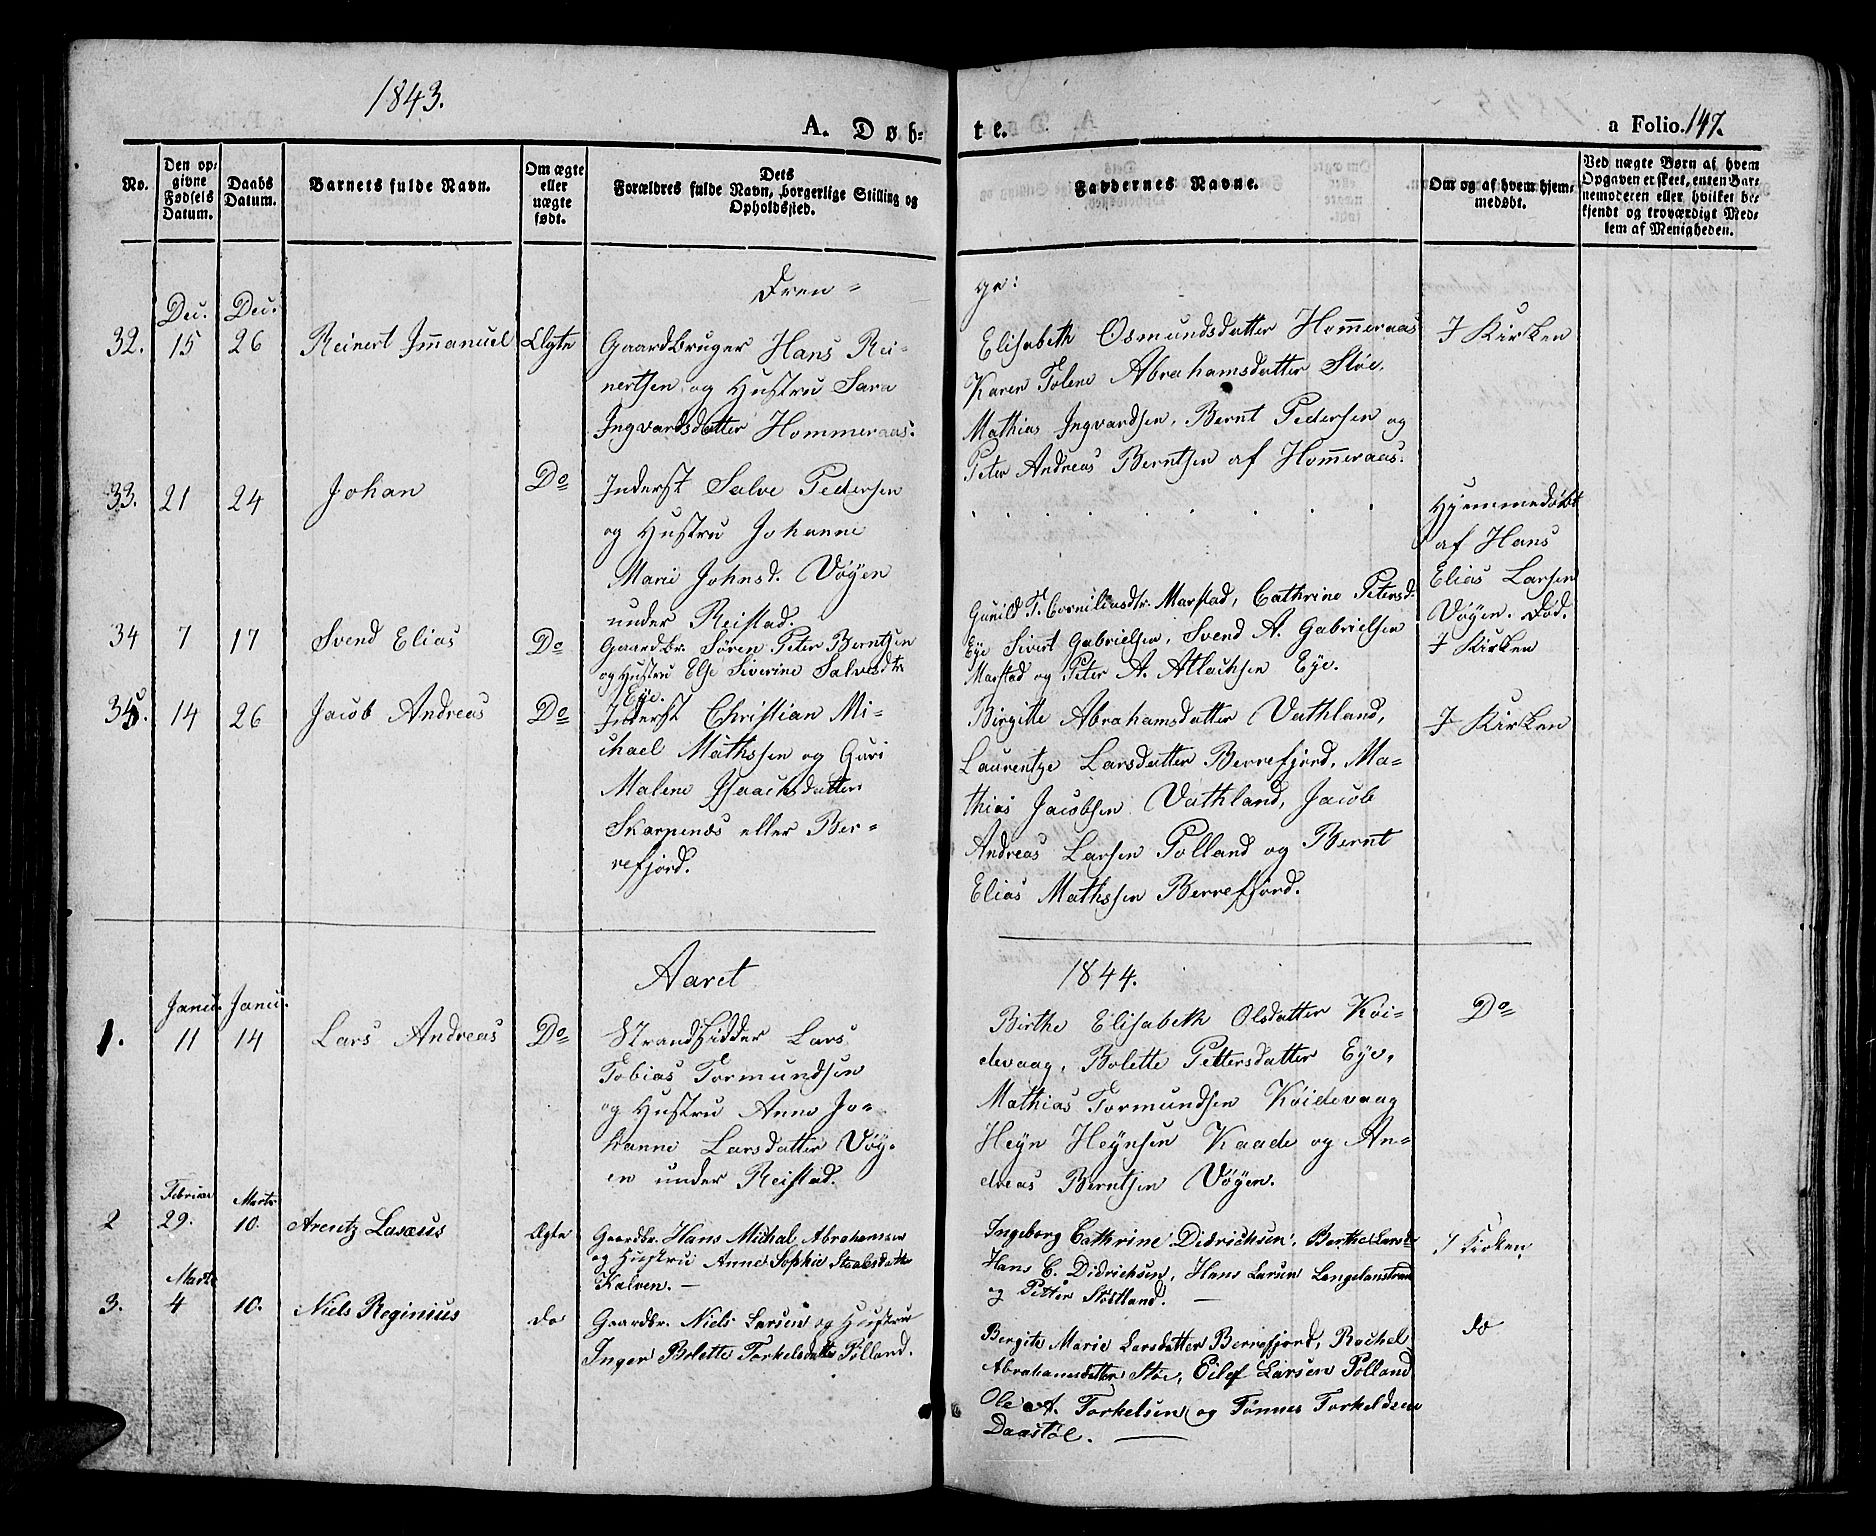 1843.
A. Døb-
te.
a Folio. 147.
No.
Den op-
givne
Fødsels
Datum.
Daabs
Datum.
Barnets fulde Navn.
Om ægte
eller
uægte
født.
Dets
Forældres fulde Navn, borgerlige Stilling og
Opholdssted.
Faddernes Navne.
Om og af hvem hjem-
medøbt.
Ved uægte Børn af hvem
Opgaven er skeet, enten Bar-
nemoderen eller hvilket be-
kjendt og troværdigt Med-
lem af Menigheden.
Dren-
ge:
Dec. Dec.
32. 15 26 Reinert Immanuel Ægte
Gaardbruger Hans Rei-
nertsen og Hustru Sara
Ingvardsdatter Hommeraas.
Elisabeth Osmundsdatter Hommeraas
Karen Tolene Abrahamsdatter Støe,
Mathias Ingvardsen, Bernt Pedersen og
Peter Andreas Berntsen af Hommeraas.
I Kirken
33. 21 24 Johan Do
Inderst Salve Pedersen
og Hustru Johanne
Marie Johnsd. Vøyen
under Reistad.
. . . . . . . .
Hjemmedøbt
af Hans
Elias Larsen
Vøyen. Død.
34 7 17 Svend Elias Do
Gaardbr. Søren Peter Berntsen
og Hustru Else Siverine Salvesdtr
Eye.
Gunild T. Corneliusdtr. Marstad, Cathrine Petersd.
Eye Sivert Gabrielsen, Svend A. Gabrielsen
Marstad og Peter A. Atlachsen Eye.
I Kirken
35. 14 26 Jacob Andreas Do
Inderst Christian Mi-
chael Mathssen og Guri
Malene Isaachsdatter
Skarpenæs eller Ber-
refjord.
Birgitte Abrahamsdatter Vathland,
Laurentze Larsdatter Berrefjord, Ma-
thias Jacobsen Vathland, Jacob
Andreas Larsen Polland og Bernt
Elias Mathssen Berrefjord.
I Kirken
Aaret
1844.
Janu. Janu.
1. 11 14 Lars Andreas Do
Strandsidder Lars
Tobias Tormundsen
og Hustru Anne Jo-
hanne Larsdatter Vøy-
en under Reistad.
Birthe Elisabeth Olsdatter Køi-
devaag, Bolette Pettersdatter Eye,
Mathias Tormundsen Køidevaag
Heyn Heynsen Kaade og An-
dreas Berntsen Vøyen.
Do
Februar Marts
2 29. 10. Arentz Lasæus Ægte
Gaardbr. Hans Michal Abrahamsen
og Hustru Anne Sophie
Kalven. —
Ingeborg Cathrine Didrichsen, Berthe Larsd.
Hans C. Didrichsen, Hans Larsen
og Petter Støtland. —
I Kirken
Marts
3. 4 10. Niels Reginius do
Gaardbr. Niels Larsen og Hustru
Inger Bolette Torkelsdatter Polland.
Bergite Marie Larsdatter Berrefjord, Rachel
Abrahamsdatter Støe, Eilef Larsen Polland
Ole A. Torkelsen og Tønnes Torkeldsen
Daastøl. —
do